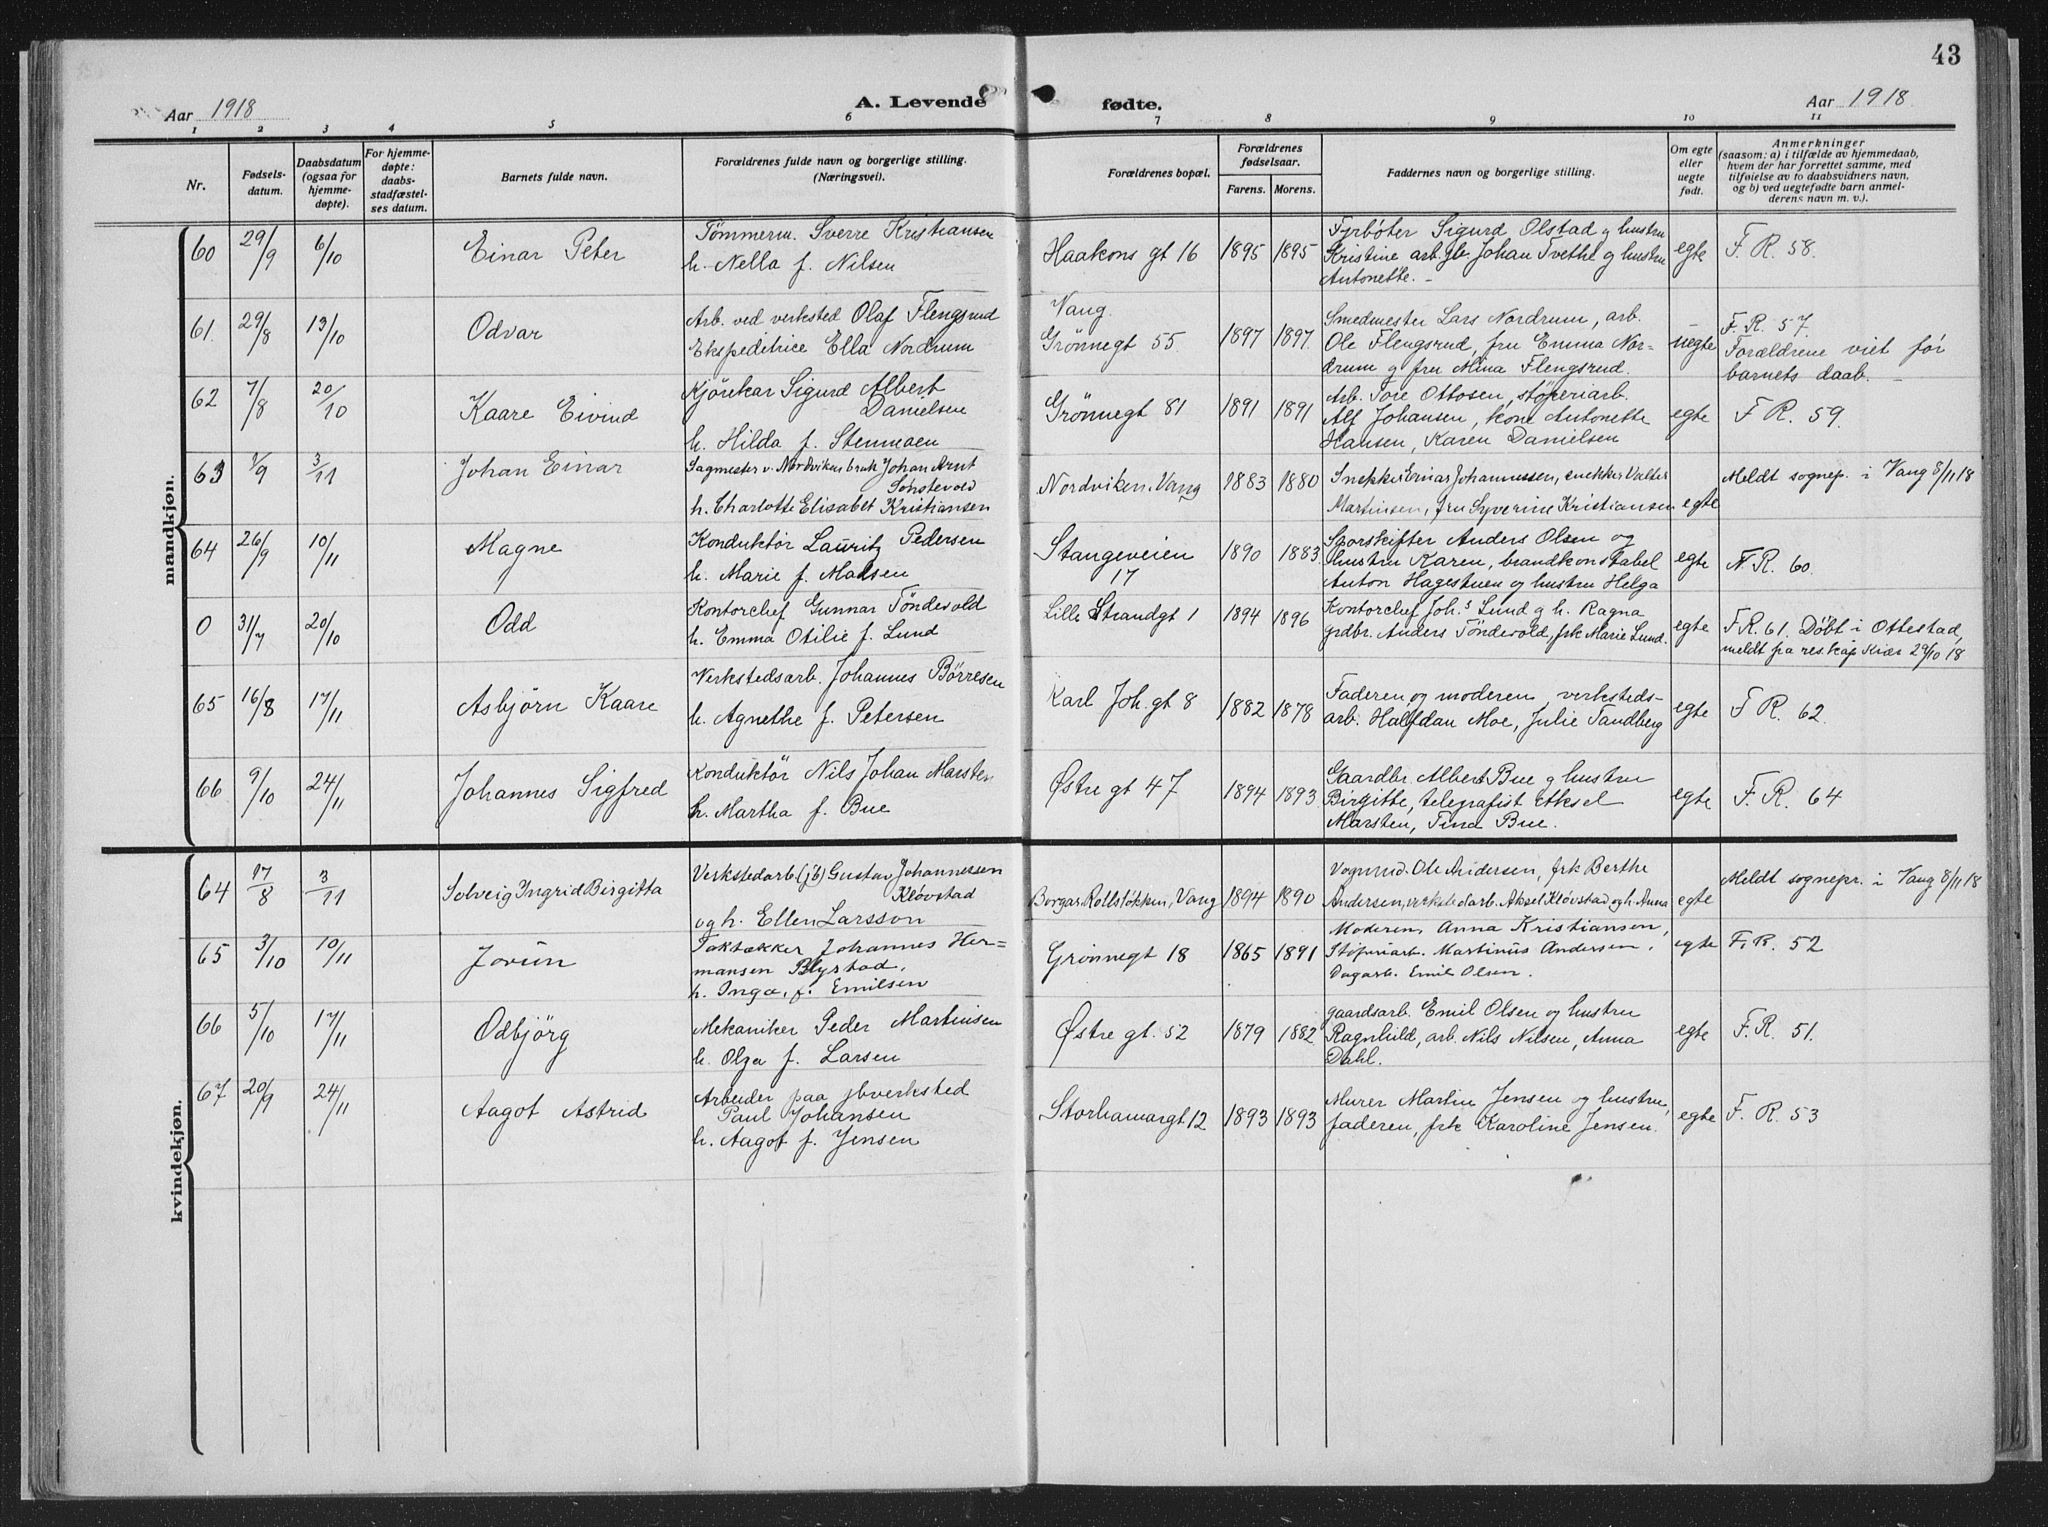 43
Aar 1918
A. Levende
fødte.
Aar 1918.
1 2 3 4 5 6 7 8 9 10 11
Nr.
Fødsels-
datum.
Daabsdatum
(ogsaa for
hjemme-
døpte).
For hjemme-
døpte:
daabs-
stadfæstel-
ses datum.
Barnets fulde navn.
Forældrenes fulde navn og borgerlige stilling.
(Næringsvei).
Forældrenes bopæl.
Forældrenes
fødselsaar.
Farens. Morens.
Faddernes navn og borgerlige stilling.
Om egte
eller
uegte
født.
Anmerkninger
(saasom: a) i tilfælde av hjemmedaab,
hvem der har forrettet samme, med
tilføielse av to daabsvidners navn,
og b) ved uegtefødte barn anmel-
derens navn m. v.).
mandkjøn.
60 29/9 6/10 Einar Peter
Tømmerm. Sverre Kristiansen
h. Nella f. Nilsen
Haakons gt 16 1895 1895
Fyrbøter Sigurd Olstad g hustru
Kristine arb. Johan Tvethe g hustru
Antonette. -
egte F. R. 58.
61. 29/8 13/10 Odvar
Arb. ved verksted Olaf Flengsrud
Ekspeditrice Ella Nordrum
Vang.
Grønnegt 55. 1897 1897.
Smedmester Lars Nordrum, arb.
Ole Flengsrud, fru Emma Nor-
drum g fru Mina Flengsrud.
uegte
F. R. 57.
Forældrene viet før
barnets daab. -
62 7/8 20/10 Kaare Eivind
Kjørekar Sigurd Albert
Danielsen
h. Hilda f. Stenmoen
Grønnegt 81 1891 1891
Arb. Tore Ottosen, støperiarb.
Alf Johansen, kone Antonette
Hansen, Karen Danielsen
egte F R. 59.
63 1/9 3/11 Johan Einar
Sagmester v. Nordvikens bruk Johan Arnt
Sønstevold
h. Charlotte Elisabet Kristiansen
Nordviken, Vang 1883 1880
Snekker Einar Johannessen, snekker Valter
Martinsen, fru Syverine Kristiansen
egte Meldt sognep. i Vang 8/11 18
64 26/9 10/11 Magne
Konduktør Lauritz Pedersen
h. Marie f. Madsen
Stangeveien
17
1890 1883
Sporskifter Anders Olsen og
hustru Karen, brandkonstabel
Anton Hagestuen og hustru Helga
egte F. R. 60.
0 31/7 20/10 Odd
Kontorchef Gunnar Tøndevold
h. Emma Otilie f. Lund
Lille Strandgt 1 1894 1896
Kontorchef Joh.s Lund g h. Ragna
grdbr. Anders Tøndevold, frk Marie Lund.
egte F R. 61. Døbt i Ottestad,
meldt fra res. kap Kiær 29/10 18
65 16/8 17/11 Asbjørn Kaare
Verkstedsarb. Johannes Børresen
h. Agnethe f. Petersen
Karl Joh. gt 8 1882 1878
Faderen og moderen verksteds-
arb. Halfdan Moe, Julie Tandberg
egte F R. 62.
66 9/10 24/11 Johannes Sigfred
Konduktør Nils Johan Marsten
h. Martha f. Bue
Østre gt 47 1894 1893
Gaardbr. Albert Bue g hustru
Birgitte, telegrafist Aksel
Marsten, Tina Bue.
egte F. R. 64
kvindekjøn.
64 17/8 3/11 Solveig Ingrid Birgitta
Verkstedarb (jb) Gustav Johannessen
Kløvstad
og h. Ellen Larsson
Borgar, Rollsløkken, Vang 1894 1890
Vognmd. Ole Andersen, frk Berthe
Andersen, verkstedarb. Aksel Kløvstad og h. Anna
egte Meldt sognepr. i Vang 8/11 18
65 3/10 10/11 Jorun
Taktækker Johannes Her-
mansen Blystad,
h. Inga, f. Emilsen
Grønnegt 18 1865 1891
Moderen, Anna Kristiansen,
Støperiarb. Martinus Andersen,
Dagarb. Emil Olsen.
egte F. R. 52
66 5/10 17/11 Odbjørg
Mekaniker Peder Martinsen
h. Olga f. Larsen
Østre gt. 52 1879 1882
gaardsarb. Emil Olsen og hustru
Ragnhild, arb. Nils Nilsen, Anna
Dahl.
egte F. R. 51.
67 20/9 24/11 Aagot Astrid
Arbeider paa jbverksted
Paul Johansen
h. Aagot f. Jensen
Storhamargt 12 1893 1893
Murer Martin Jensen og hustru,
faderen, frk Karoline Jensen.
egte F. R. 53